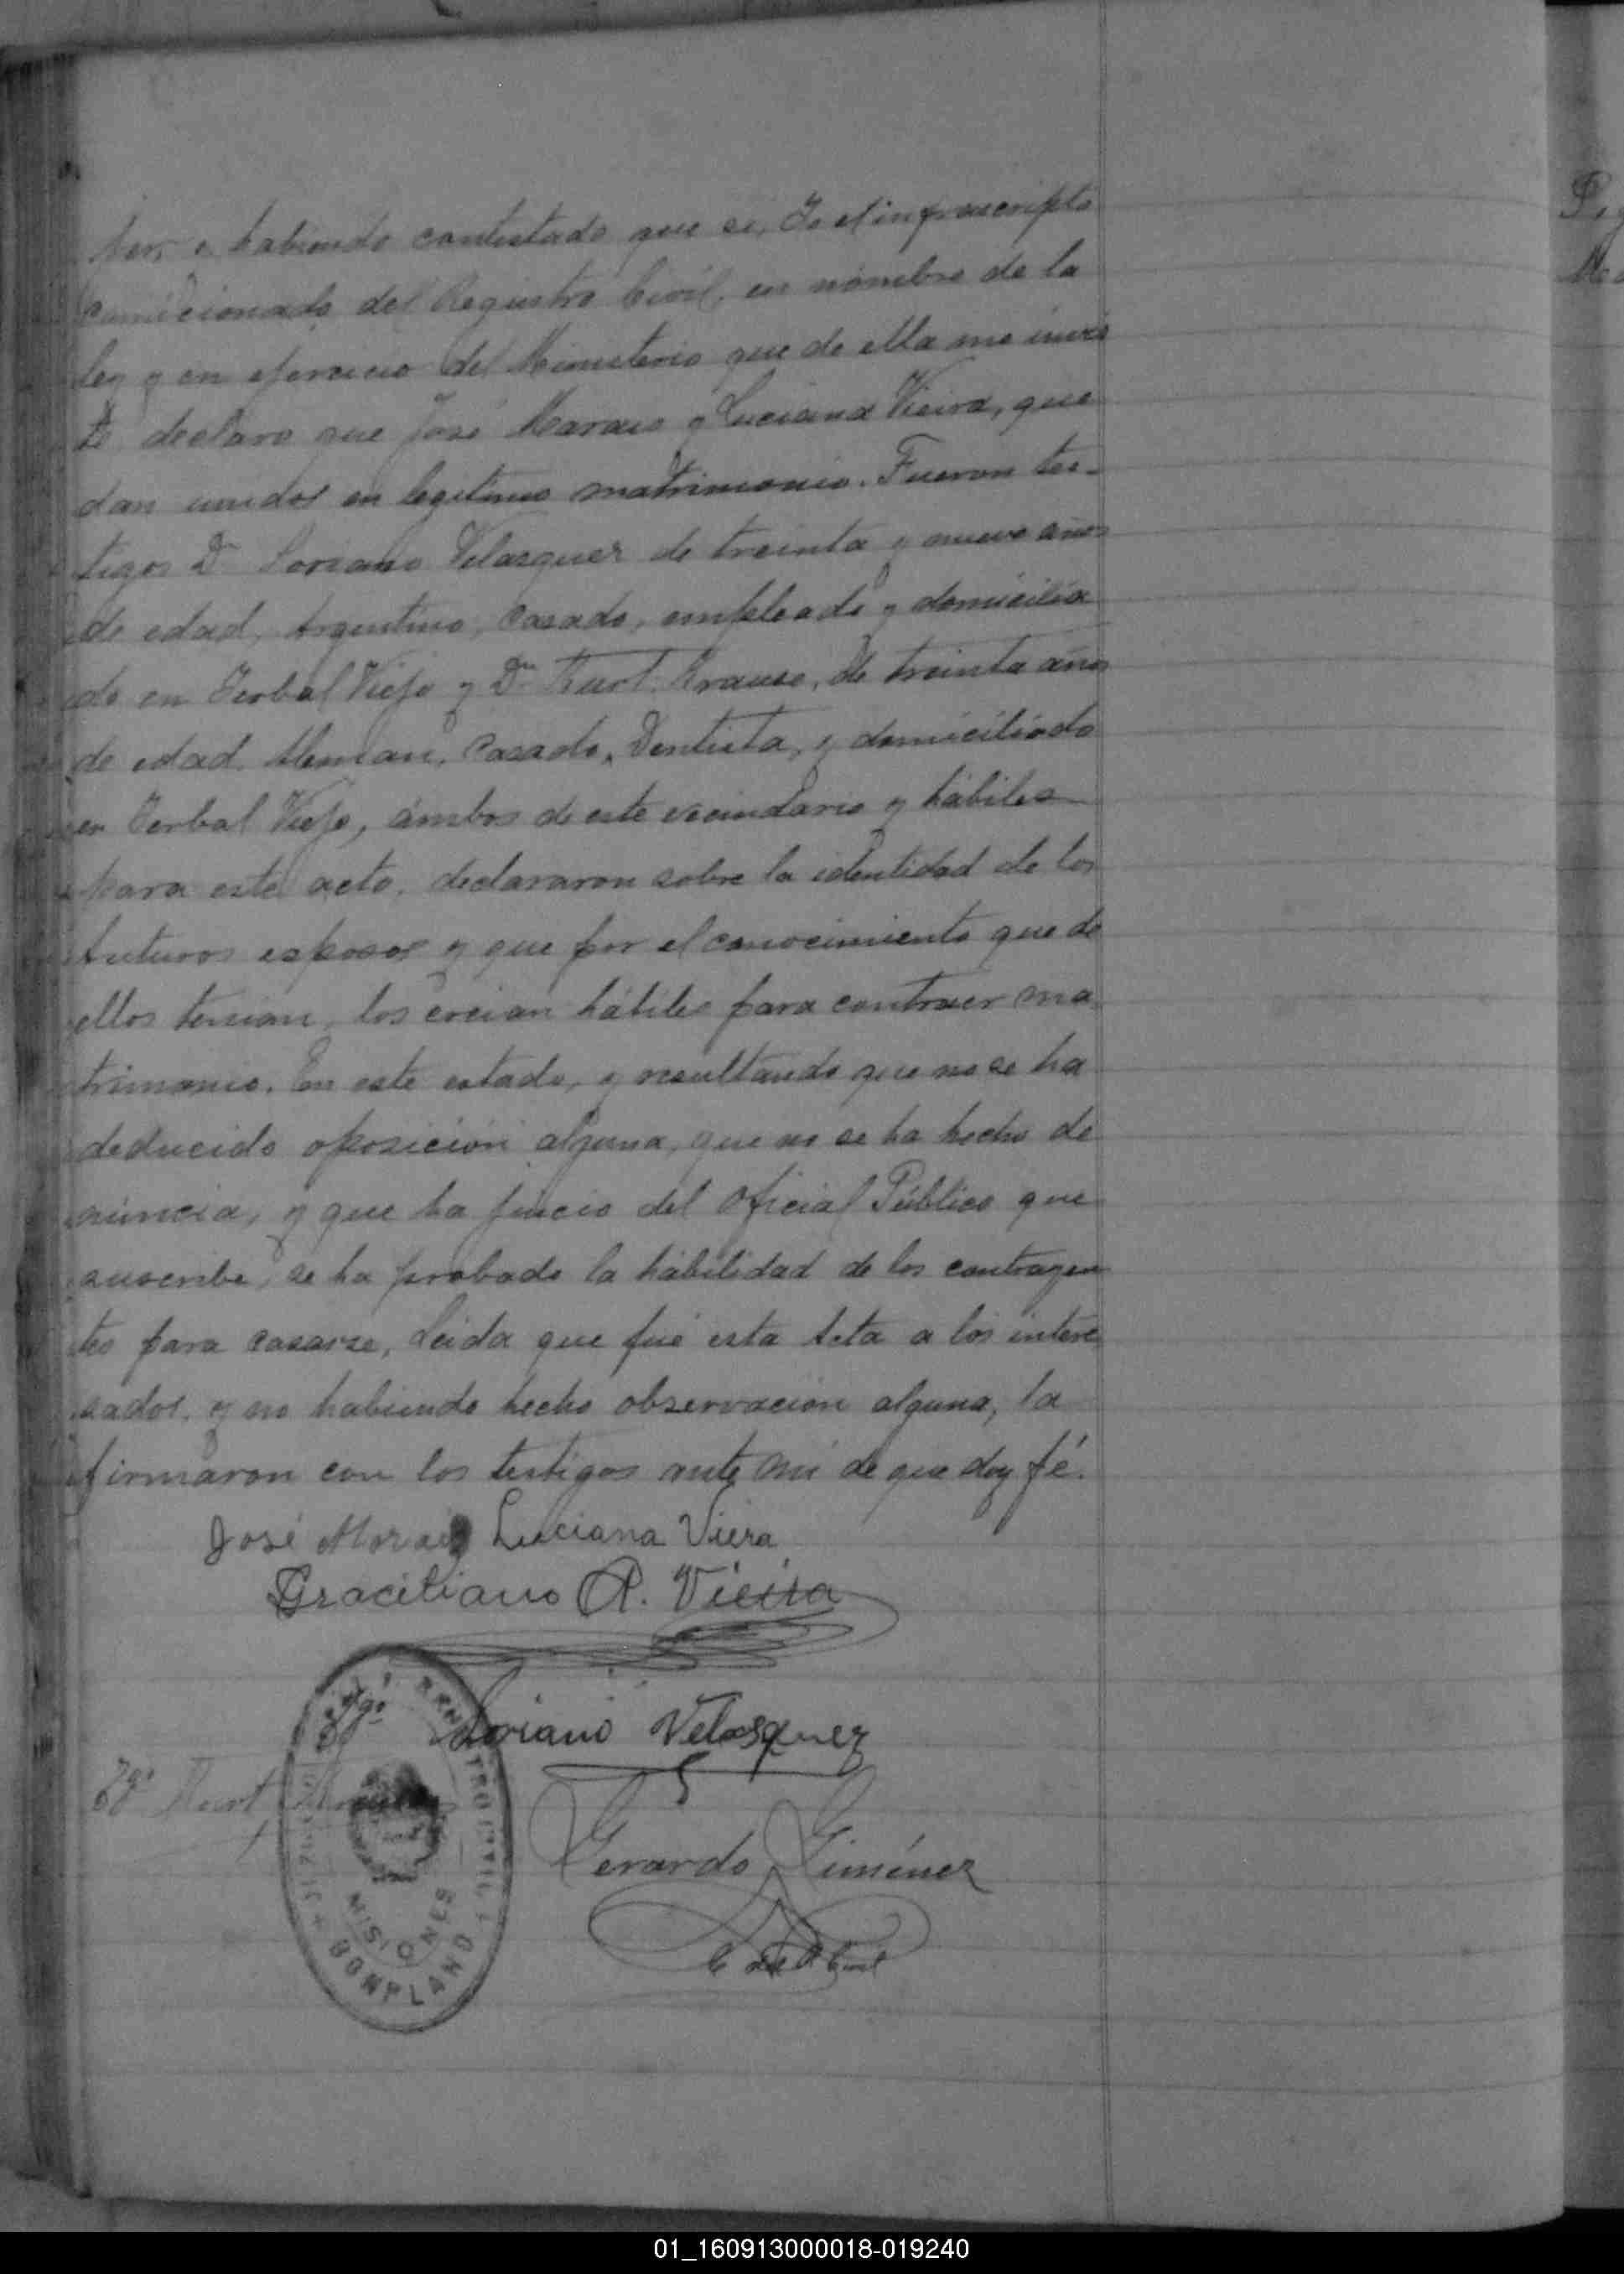 habiendo contestado que si, Yo el infrascripto
comicionado del Registro Civil, en nombre de la
ley y en ejercicio del Ministerio que de ella me invis
te declaro que José Maraes y Luciana Vieira, que
dan unidos en legitimo matrimonio. Fueron tes-
tigos Dn Soriano Velazquez de treinta y nueve años
de edad, Argentino, casado, empleado y domicilia
do en Yerbal Viejo y Dn Kurt Krause, de treinta años
de edad Aleman, casado, Dentista, y domiciliado
en Yerbal Viejo, ámbos de este vecindario y hábiles
para este acto, declararon sobre la identidad de los
futuros esposos y que por el conocimiento que de
ellos tenian, los creian hábiles para contraer ma
trimonio. En este estado, y resultando que no se ha
deducido oposición alguna, que no se ha hecho de
núncia, y que ha juicio del Oficial Público que
suscribe, se ha probado la hábilidad de los contrayen
tes para casarse, Leida que fué esta Acta a los intere
sados, y no habiendo hecho observación alguna, la
firmaron con los testigos ante mi de que doy fé.
José Moraes Luciana Viera
Graciliano A. Vieira
Tgo Soriano Velasquez
Tgo Kurt Krause
Gerardo Giménez
MISIONES
BONPLAND
P
01_160913000018-019240